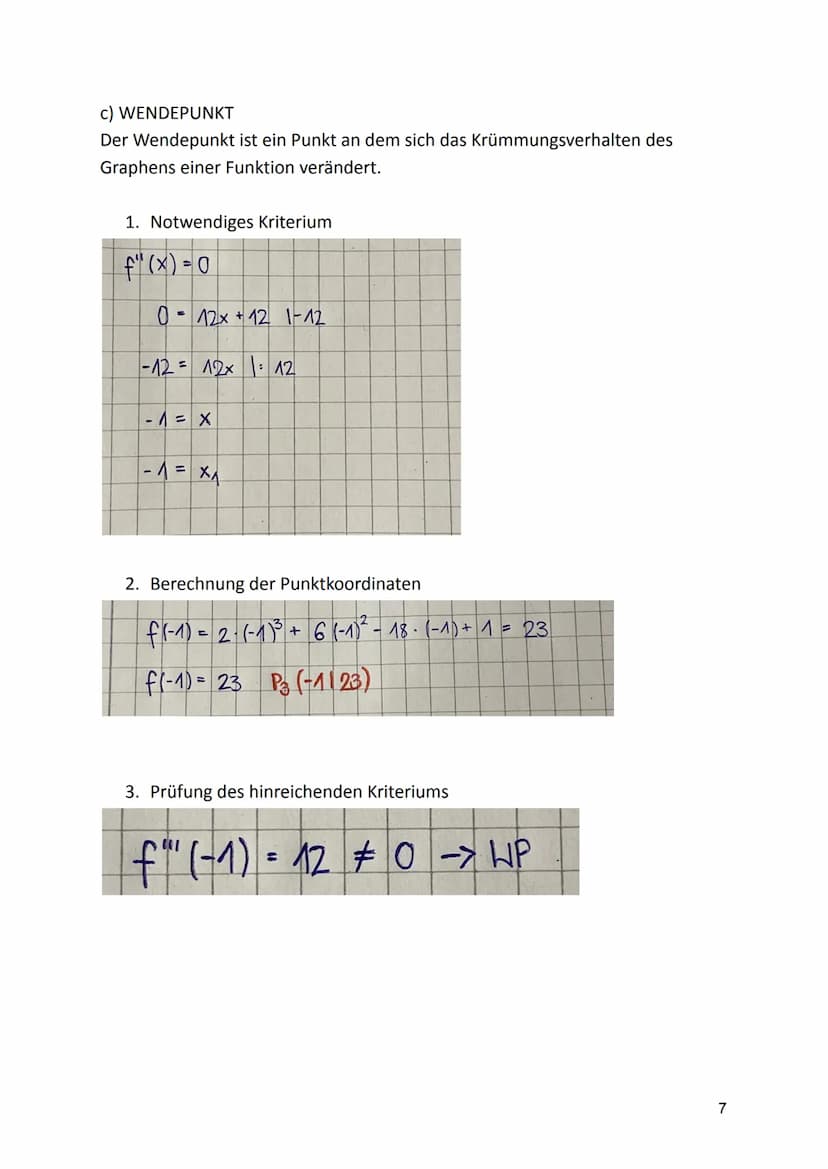 c) WENDEPUNKT
Der Wendepunkt ist ein Punkt an dem sich das Krümmungsverhalten des
Graphens einer Funktion verändert.
1. Notwendiges Kriterium
f''(x) = 0
0 = 12x + 12 |-12
-12 = 12x |: 12
-1 = x
-1 = x₁
2. Berechnung der Punktkoordinaten
f(-1) = 2·(-1)³ + 6(-1)² - 18·(-1) + 1 = 23
f(-1) = 23 P₃(-1|23)
3. Prüfung des hinreichenden Kriteriums
f'''(-1) = 12 ≠ 0 -> WP
7